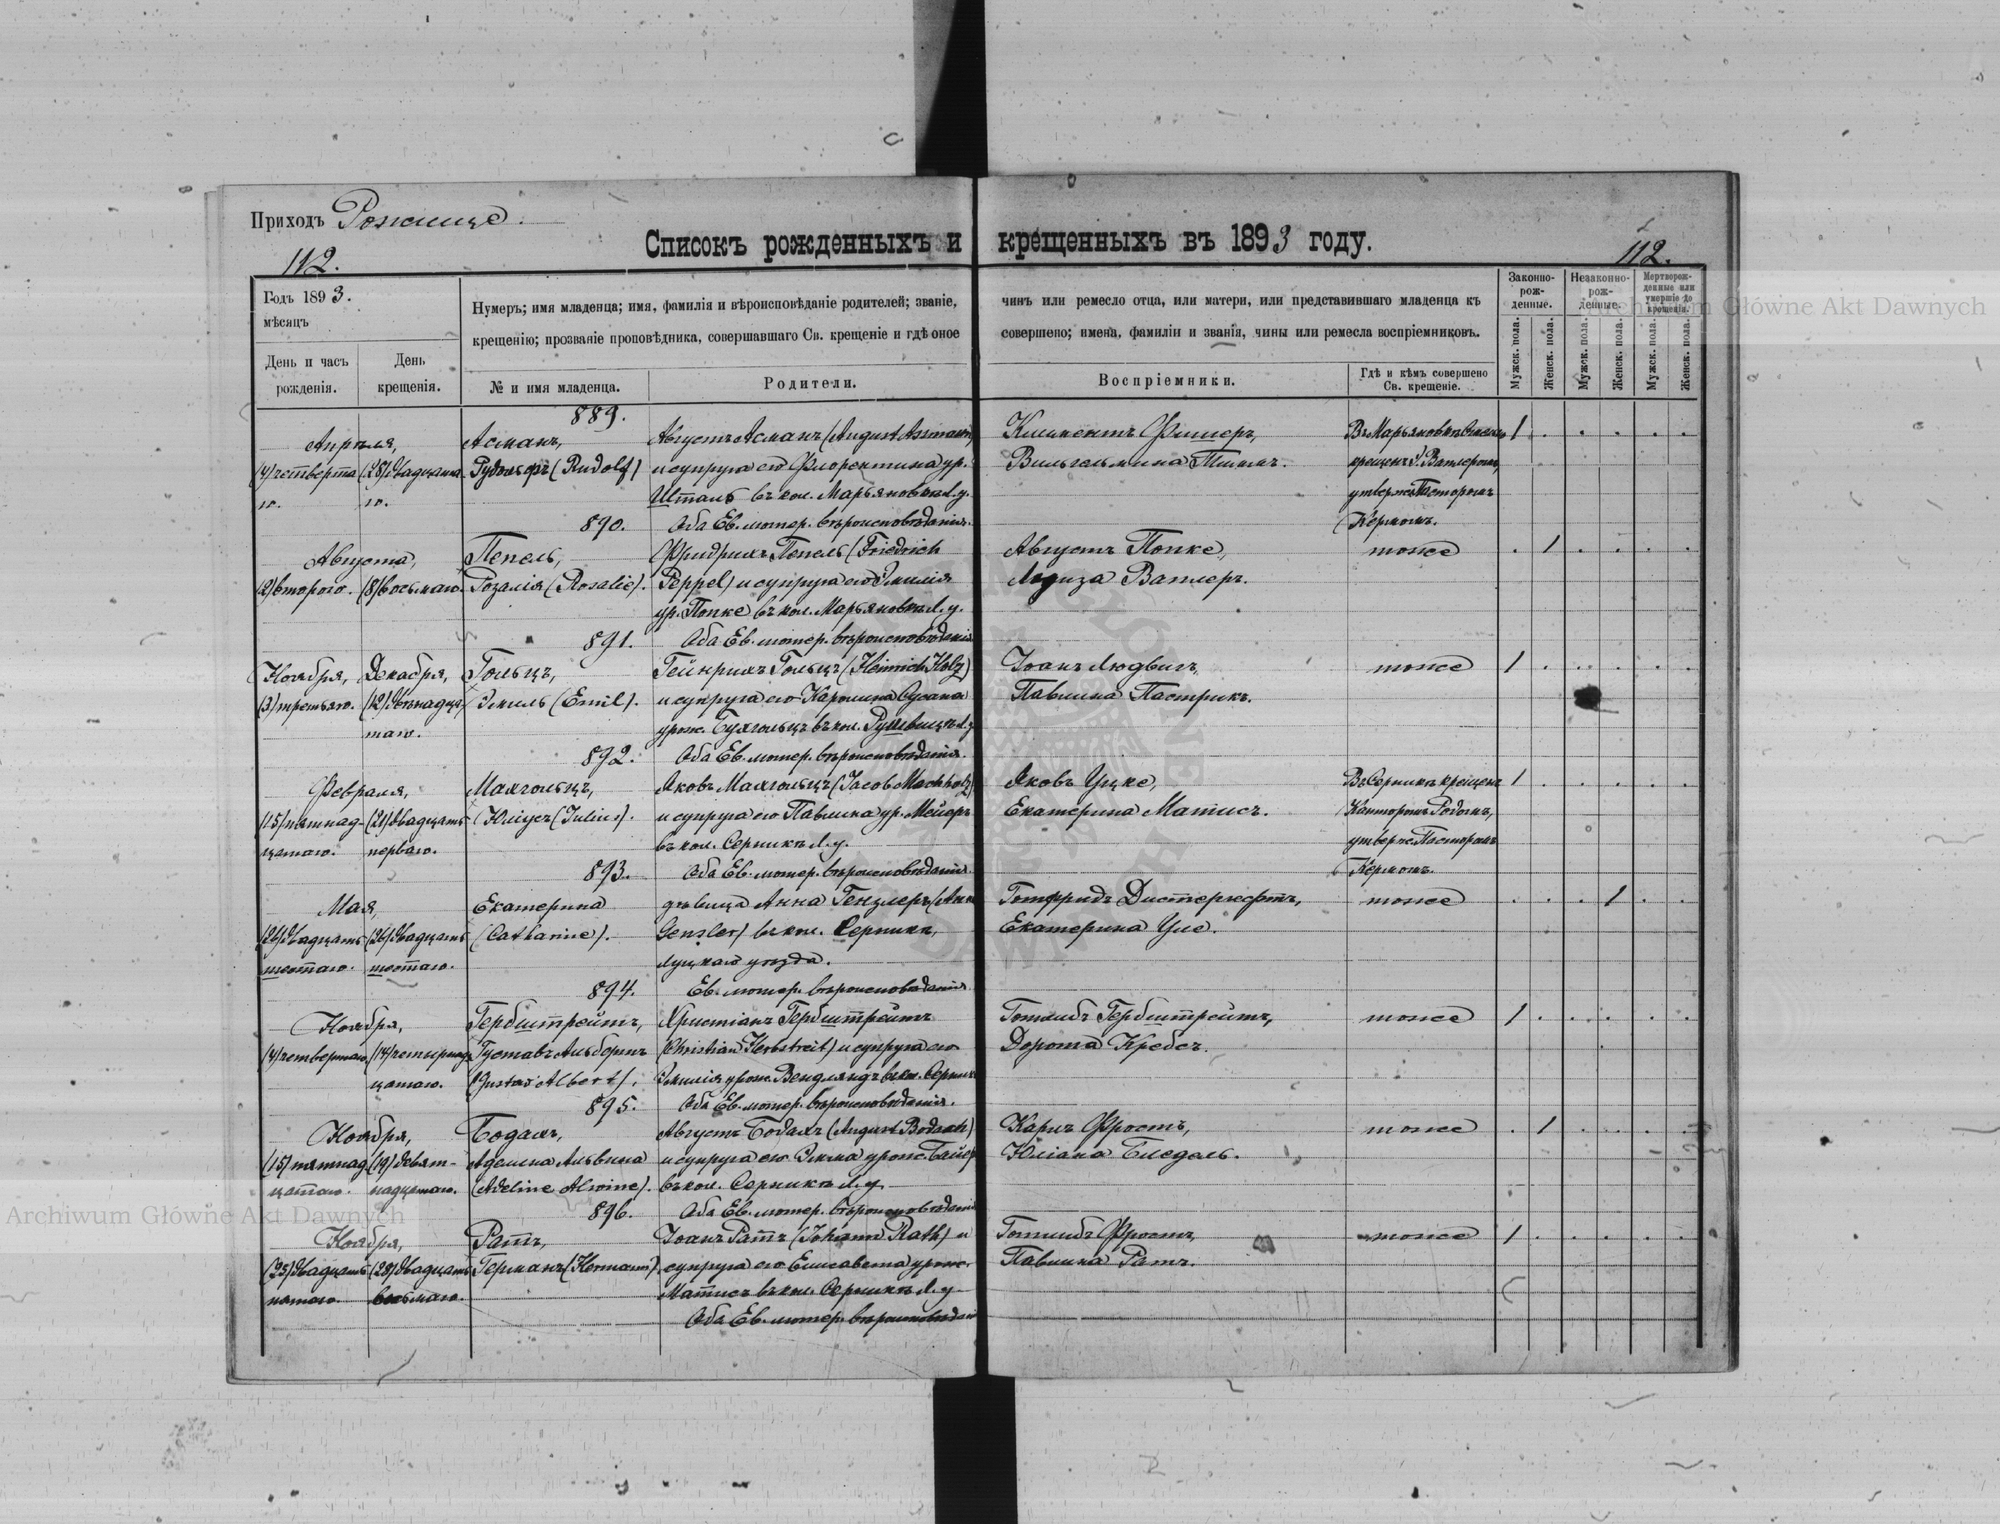 Приходъ Рожище.
Списокъ рожденныхъ и крещенныхъ въ 1893 году.
112.
112.
Годъ 1893.
мѣсяцъ
День и часъ рожденія.
День крещенія.
Нумеръ; имя младенца; имя, фамилія и вѣроисповѣданіе родителей; званіе, чинъ или ремесло отца, или матери, или представившаго младенца къ
крещенію; прозваніе проповѣдника, совершавшаго Св. крещеніе и гдѣ оное совершено; имена, фамиліи и званія, чины или ремесла воспріемниковъ.
№ и имя младенца.
Родители.
Воспріемники.
Гдѣ и кѣмъ совершено Св. крещеніе.
Законно-рож-денные.
Незаконно-рож-денные.
Мертворож-денные или умершіе до крещенія.
Мужск. пола.
Женск. пола.
Мужск. пола.
Женск. пола.
Мужск. пола.
Женск. пола.
889.
Апрѣля,
(4) четверта
го.
(28) двадцата
го.
Асманъ,
Рудольфъ (Rudolf)
Августъ Асманъ (August Assmann)
и супруга его Флорентина ур.
Шталь въ кол. Марьяновкѣ Л. у.
Оба Ев. лютер. вѣроисповѣданія.
Климентъ Фишеръ,
Вильгельмина
крещенъ
утвержд. Пасторомъ
Кёрномъ.
1
890.
Августа,
(2) второго. (8) восьмаго.
Пепель,
Розалія (Rosalie).
Фридрихъ Пепель (Friedrich
Peppel) и супруга его Эмилія
ур. Попке въ кол. Марьяновкѣ Л. у.
Оба Ев. лютер. вѣроисповѣданія
Августъ Попке,
Луиза Ватлеръ.
тоже
1
891.
Ноября,
(3) третьяго.
Декабря,
(12) двѣнадца
таго.
Гольцъ,
Эмиль (Emil).
Гейнрихъ Гольцъ (Heinrich Holz)
и супруга его Каролина Сусана
урож. Бухгольцъ въ кол.
Оба Ев. лютер. вѣроисповѣданія.
Іоанъ Людвигъ,
Павлина Пастрикъ.
тоже
1
892.
Февраля,
(15) пятнад-
цатаго.
(21) двадцать
перваго.
Махгольцъ,
Юліусъ (Julius).
Яковъ Махгольцъ (Jacob Machholz)
и супруга его Павлина ур. Мейеръ
въ кол. Серникѣ Л. у.
Оба Ев. лютер. вѣроисповѣданія.
Яковъ Уцке,
Екатерина Матисъ.
Въ Серникѣ крещенъ
Канторомъ
утвержд. Пасторомъ
Кёрномъ.
1
893.
Мая,
(26) двадцать
шестаго.
(26) двадцать
шестаго.
Екатерина
(Catharine).
дѣвица Анна Гензлеръ (Anna
Genzler) въ кол. Серникѣ,
Луцкаго уѣзда.
Ев. лютер. вѣроисповѣданія
Готфридъ Дистергефтъ,
Екатерина Уле.
тоже
1
894.
Ноября,
(4) четвертаго.
(14) четырнад
цатаго.
Гербштрейтъ,
Густавъ Альбертъ
(Gustav Albert),
Христіанъ Гербштрейтъ
(Christian Herbstreit) и супруга его
Эмилія урож. Вендляндъ въ кол. Серникѣ
Оба Ев. лютер. вѣроисповѣданія.
Готлибъ Гербштрейтъ,
Дорота Кребсъ.
тоже
1
895.
Ноября,
(15) пятнад
цатаго.
(19) девят-
надцатаго.
Бодахъ,
Аделина Альвина
(Adeline Alwine).
Августъ Бодахъ (August Bodach)
и супруга его Эмма урож. Байеръ
въ кол. Серникѣ Л. у.
Оба Ев. лютер. вѣроисповѣданія
Карлъ Фростъ,
Юліана
тоже
1
896.
Ноября,
(25) двадцать
пятаго.
(28) двадцать
восьмаго.
Ратъ,
Германъ (Hermann).
Іоанъ Ратъ (Johann Rath) и
супруга его Елисавета урож.
Матисъ въ кол. Серникѣ Л. у
Оба Ев. лютер. вѣроисповѣданія
Готлибъ Фростъ,
Павлина Ратъ.
тоже
1
Archiwum Główne Akt Dawnych
Archiwum Główne Akt Dawnych